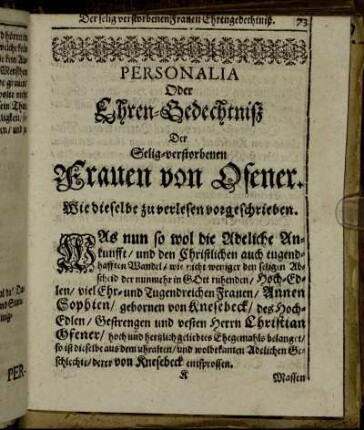 Der selig verstorbenen Frauen Ehrengedechtniß. 73
PERSONALIA
Oder
Ehren-Gedechtniß
Der
Selig-verstorbenen
Frauen von Ofener.
Wie dieselbe zu verlesen vorgeschrieben.
WAs nun so wol die Adeliche An-
kunfft/ und den Christlichen auch tugend-
hafften Wandel/ wie nicht weniger den seligen Ab-
scheid der nunmehr in GOtt ruhenden/ Hoch-Ed-
len/ viel Ehr- und Tugendreichen Frauen/ Annen
Sophien/ gebornen von Knesebeck/ des Hoch-
Edlen/ Gestrengen und vesten Herrn Christian
Ofener/ hoch und hertzlichgeliebtes Ehegemahls belanget/
so ist dieselbe aus dem uhralten/ und wolbekanten Adelichen Ge-
schlechte/ derer von Knesebeck entsprossen.
K Massen
PER-